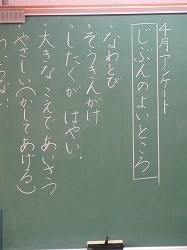 4月アンケート
じぶんのよいところ
・なわとび
・ぞうきんがけ
・したくが はやい。
・大きなこえであいさつ
・やさしい(かしてあげる)